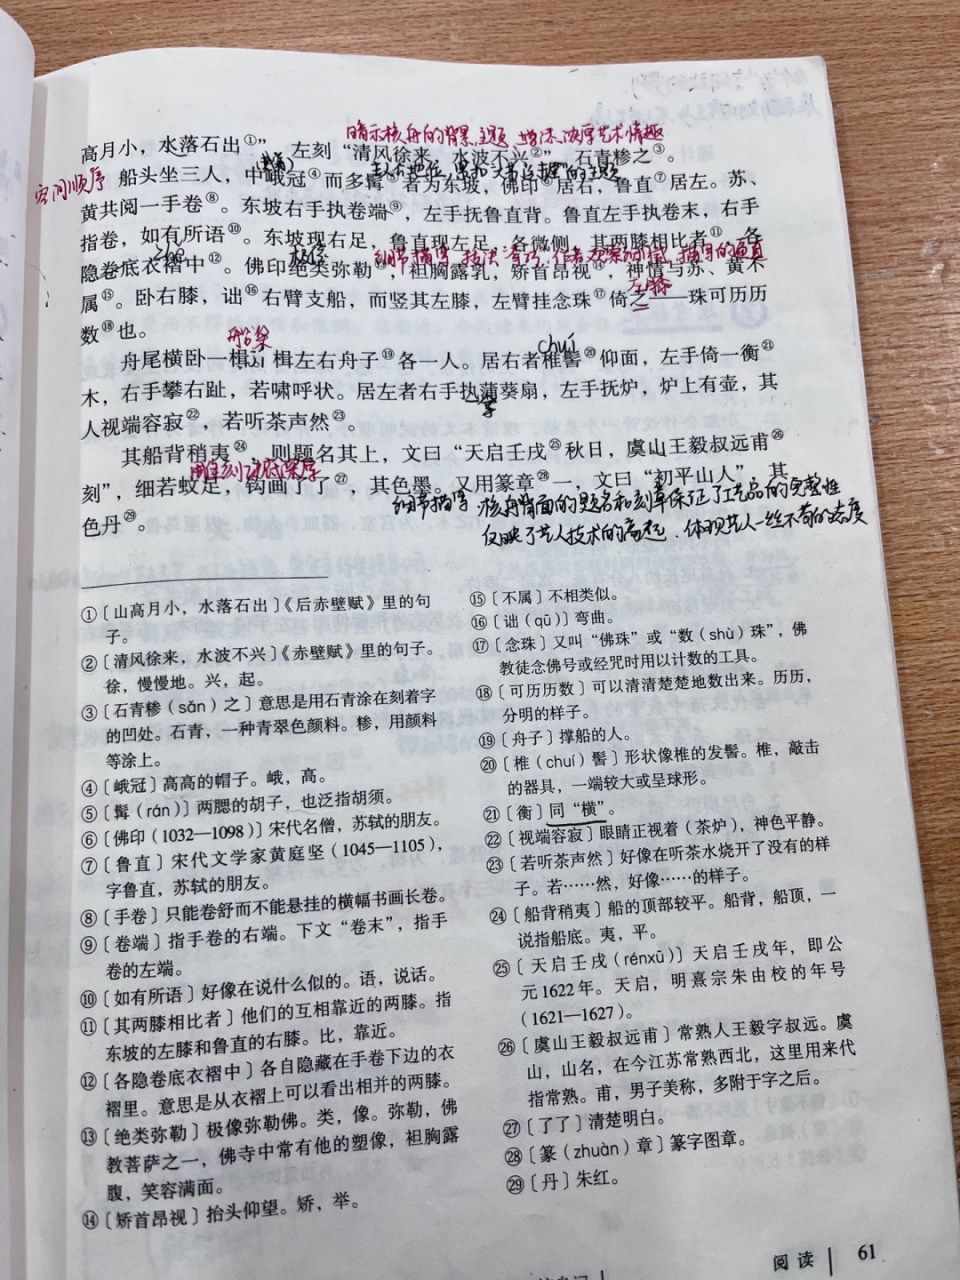 暗示核舟的背景、主题 增添浓厚艺术情趣
高月小，水落石出①”，左刻“清风徐来，水波不兴②”，石青糁之③。
空间顺序
船头坐三人，中峨冠④而多髯⑤者为东坡，佛印⑥居右，鲁直⑦居左。苏、
黄共阅一手卷⑧。东坡右手执卷端⑨，左手抚鲁直背。鲁直左手执卷末，右手
指卷，如有所语⑩。东坡现右足，鲁直现左足，各微侧，其两膝相比者⑪，各
极像
隐卷底衣褶中⑫。佛印绝类弥勒⑬，袒胸露乳，矫首昂视⑭，神情与苏、黄不
左膝
属⑮。卧右膝，诎⑯右臂支船，而竖其左膝，左臂挂念珠⑰倚之——珠可历历
数⑱也。
船桨
chuí
舟尾横卧一楫，楫左右舟子⑲各一人。居右者椎髻⑳仰面，左手倚一衡㉑
木，右手攀右趾，若啸呼状。居左者右手执蒲葵扇，左手抚炉，炉上有壶，其
人视端容寂㉒，若听茶声然㉓。
其船背稍夷㉔，则题名其上，文曰“天启壬戌㉕秋日，虞山王毅叔远甫㉖
刻”，细若蚊足，钩画了了㉗，其色墨。又用篆章㉘一，文曰“初平山人”，其
色丹㉙。
细节描写 核舟背面的题名和刻章保证了工艺品的完整性
仅映了艺人技术的高超，体现艺人一丝不苟的态度
①〔山高月小，水落石出〕《后赤壁赋》里的句
子。
②〔清风徐来，水波不兴〕《赤壁赋》里的句子。
徐，慢慢地。兴，起。
③〔石青糁（sǎn）之〕意思是用石青涂在刻着字
的凹处。石青，一种青翠色颜料。糁，用颜料
等涂上。
④〔峨冠〕高高的帽子。峨，高。
⑤〔髯（rán）〕两腮的胡子，也泛指胡须。
⑥〔佛印（1032—1098）〕宋代名僧，苏轼的朋友。
⑦〔鲁直〕宋代文学家黄庭坚（1045—1105），
字鲁直，苏轼的朋友。
⑧〔手卷〕只能卷舒而不能悬挂的横幅书画长卷。
⑨〔卷端〕指手卷的右端。下文“卷末”，指手
卷的左端。
⑩〔如有所语〕好像在说什么似的。语，说话。
⑪〔其两膝相比者〕他们的互相靠近的两膝。指
东坡的左膝和鲁直的右膝。比，靠近。
⑫〔各隐卷底衣褶中〕各自隐藏在手卷下边的衣
褶里。意思是从衣褶上可以看出相并的两膝。
⑬〔绝类弥勒〕极像弥勒佛。类，像。弥勒，佛
教菩萨之一，佛寺中常有他的塑像，袒胸露
腹，笑容满面。
⑭〔矫首昂视〕抬头仰望。矫，举。
⑮〔不属〕不相类似。
⑯〔诎（qū）〕弯曲。
⑰〔念珠〕又叫“佛珠”或“数（shù）珠”，佛
教徒念佛号或经咒时用以计数的工具。
⑱〔可历历数〕可以清清楚楚地数出来。历历，
分明的样子。
⑲〔舟子〕撑船的人。
⑳〔椎（chuí）髻〕形状像椎的发髻。椎，敲击
的器具，一端较大或呈球形。
㉑〔衡〕同“横”。
㉒〔视端容寂〕眼睛正视着（茶炉），神色平静。
㉓〔若听茶声然〕好像在听茶水烧开了没有的样
子。若……然，好像……的样子。
㉔〔船背稍夷〕船的顶部较平。船背，船顶，一
说指船底。夷，平。
㉕〔天启壬戌（rénxū）〕天启壬戌年，即公
元1622年。天启，明熹宗朱由校的年号
（1621—1627）。
㉖〔虞山王毅叔远甫〕常熟人王毅字叔远。虞
山，山名，在今江苏常熟西北，这里用来代
指常熟。甫，男子美称，多附于字之后。
㉗〔了了〕清楚明白。
㉘〔篆（zhuàn）章〕篆字图章。
㉙〔丹〕朱红。
阅读 61